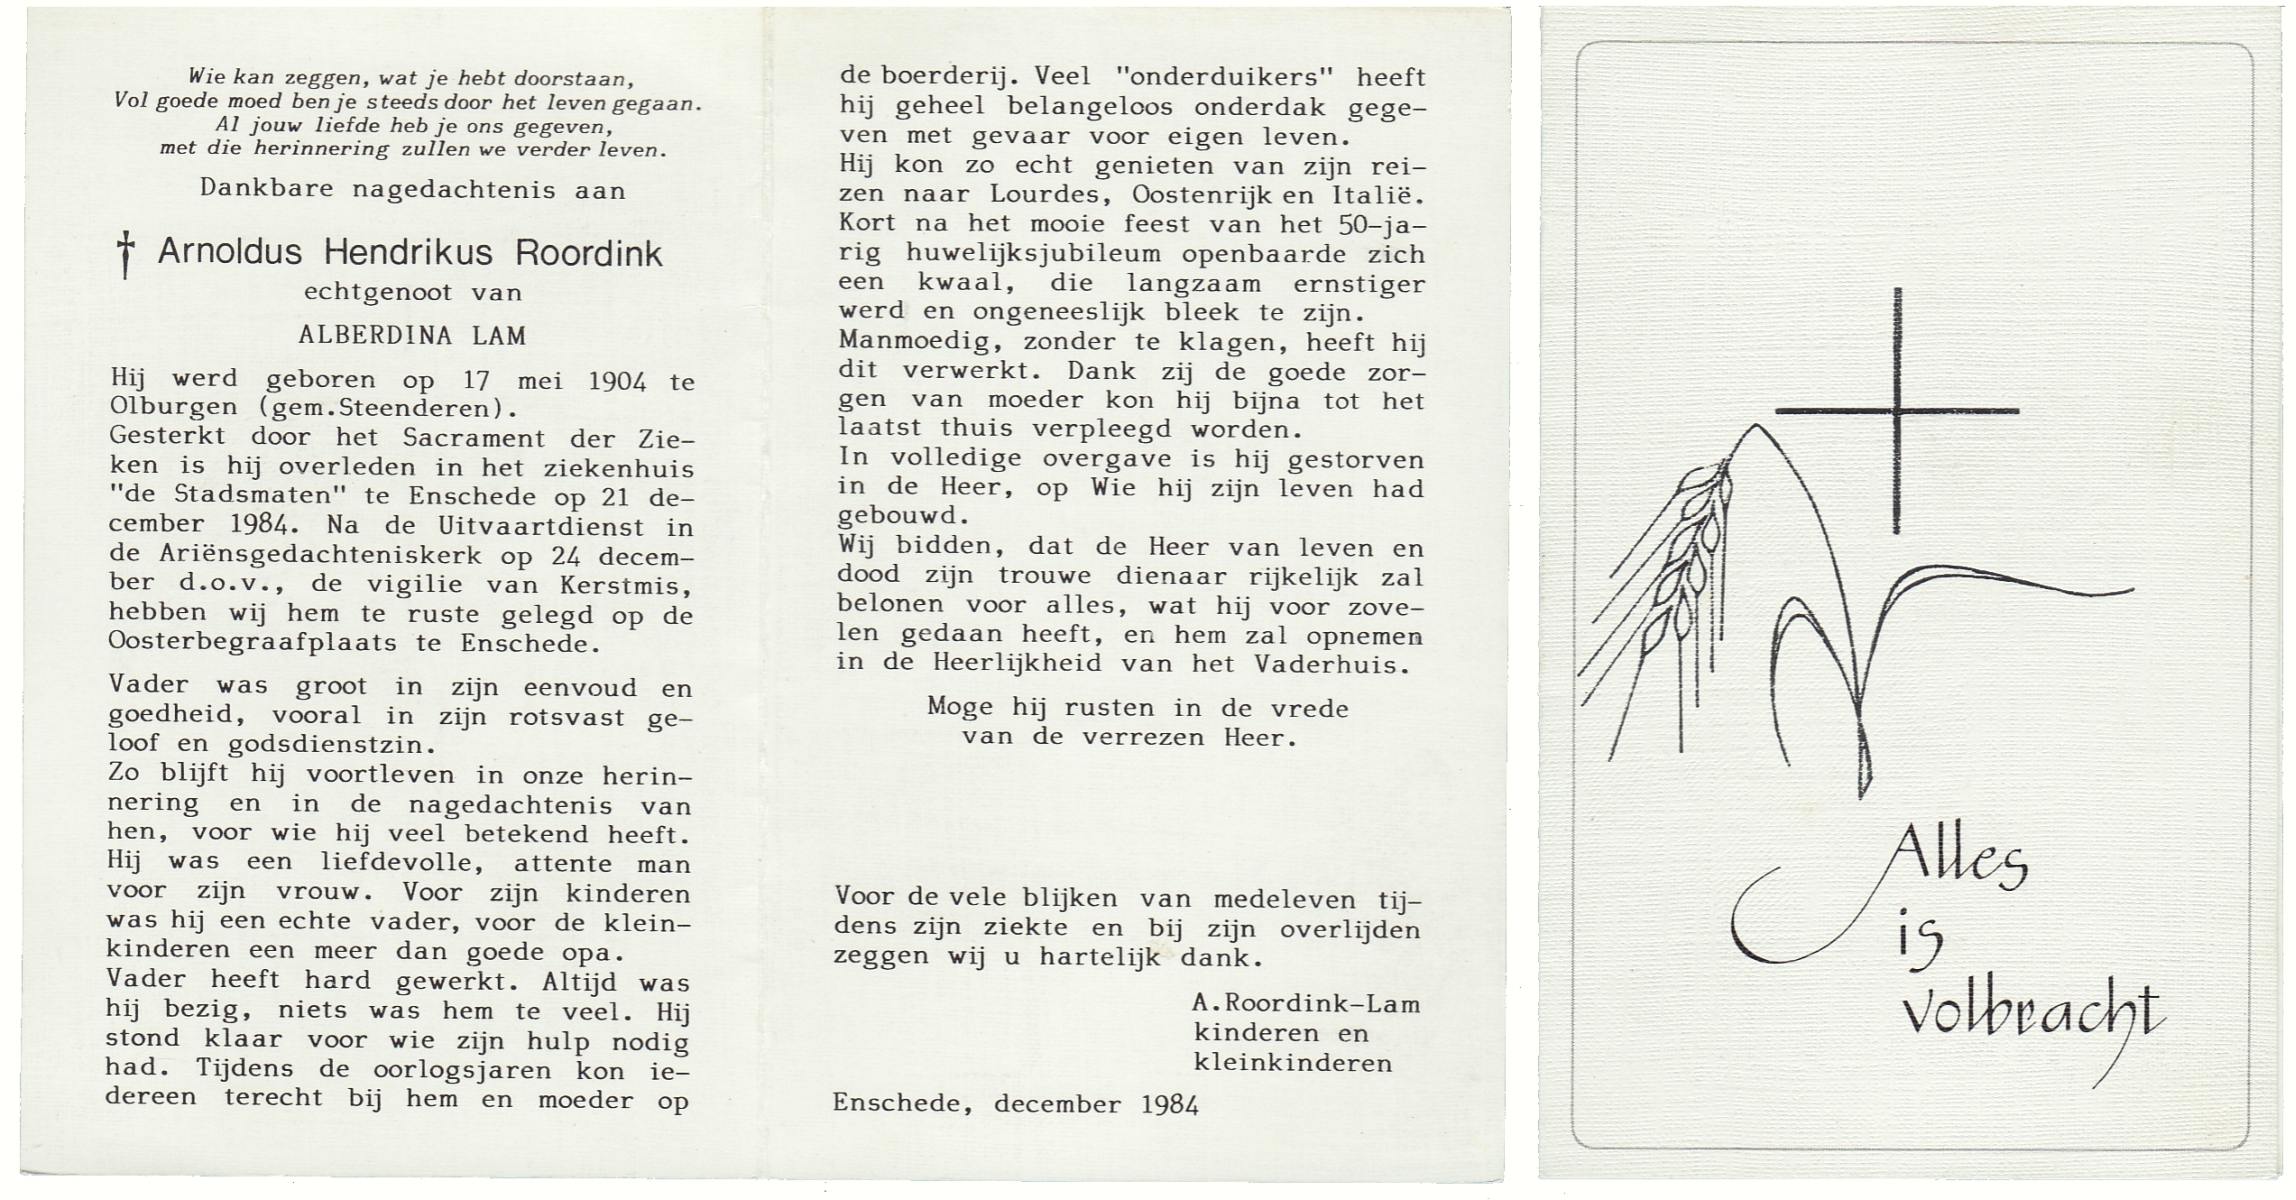 Wie kan zeggen, wat je hebt doorstaan,
Vol goede moed ben je steeds door het leven gegaan.
Al jouw liefde heb je ons gegeven,
met die herinnering zullen we verder leven.
Dankbare nagedachtenis aan
† Arnoldus Hendrikus Roordink
echtgenoot van
ALBERDINA LAM
Hij werd geboren op 17 mei 1904 te
Olburgen (gem.Steenderen).
Gesterkt door het Sacrament der Zie-
ken is hij overleden in het ziekenhuis
"de Stadsmaten" te Enschede op 21 de-
cember 1984. Na de Uitvaartdienst in
de Ariënsgedachteniskerk op 24 decem-
ber d.o.v., de vigilie van Kerstmis,
hebben wij hem te ruste gelegd op de
Oosterbegraafplaats te Enschede.
Vader was groot in zijn eenvoud en
goedheid, vooral in zijn rotsvast ge-
loof en godsdienstzin.
Zo blijft hij voortleven in onze herin-
nering en in de nagedachtenis van
hen, voor wie hij veel betekend heeft.
Hij was een liefdevolle, attente man
voor zijn vrouw. Voor zijn kinderen
was hij een echte vader, voor de klein-
kinderen een meer dan goede opa.
Vader heeft hard gewerkt. Altijd was
hij bezig, niets was hem te veel. Hij
stond klaar voor wie zijn hulp nodig
had. Tijdens de oorlogsjaren kon ie-
dereen terecht bij hem en moeder op
de boerderij. Veel "onderduikers" heeft
hij geheel belangeloos onderdak gege-
ven met gevaar voor eigen leven.
Hij kon zo echt genieten van zijn rei-
zen naar Lourdes, Oostenrijk en Italië.
Kort na het mooie feest van het 50-ja-
rig huwelijksjubileum openbaarde zich
een kwaal, die langzaam ernstiger
werd en ongeneeslijk bleek te zijn.
Manmoedig, zonder te klagen, heeft hij
dit verwerkt. Dank zij de goede zor-
gen van moeder kon hij bijna tot het
laatst thuis verpleegd worden.
In volledige overgave is hij gestorven
in de Heer, op Wie hij zijn leven had
gebouwd.
Wij bidden, dat de Heer van leven en
dood zijn trouwe dienaar rijkelijk zal
belonen voor alles, wat hij voor zove-
len gedaan heeft, en hem zal opnemen
in de Heerlijkheid van het Vaderhuis.
Moge hij rusten in de vrede
van de verrezen Heer.
Voor de vele blijken van medeleven tij-
dens zijn ziekte en bij zijn overlijden
zeggen wij u hartelijk dank.
A.Roordink-Lam
kinderen en
kleinkinderen
Enschede, december 1984
Alles
is
volbracht